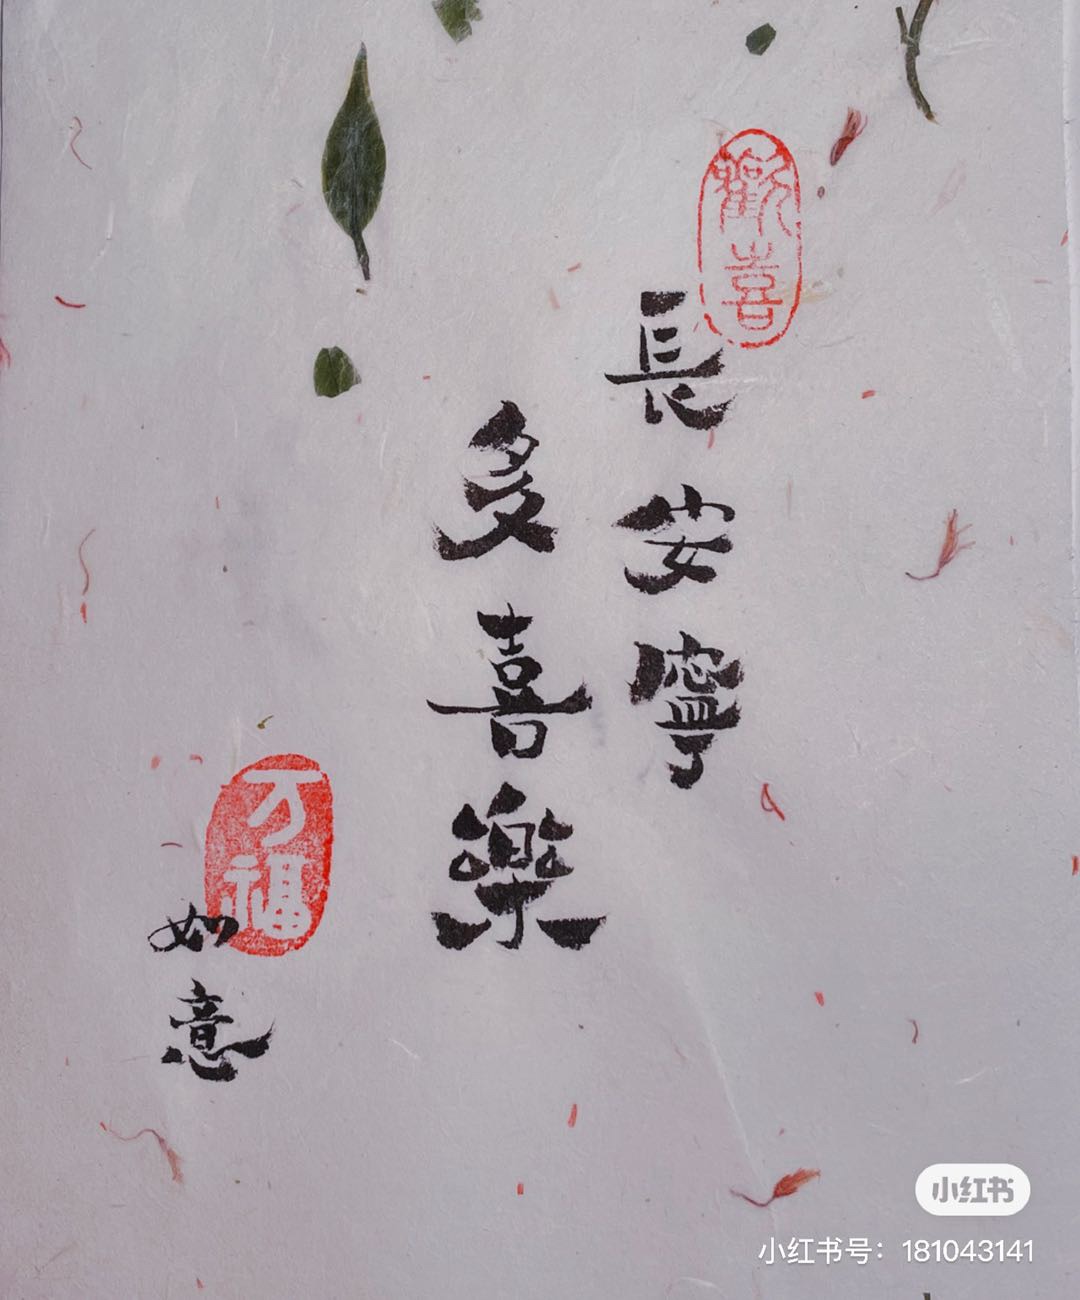 歡喜
長安寧
多喜樂
万福
如意
小红书
小红书号：181043141